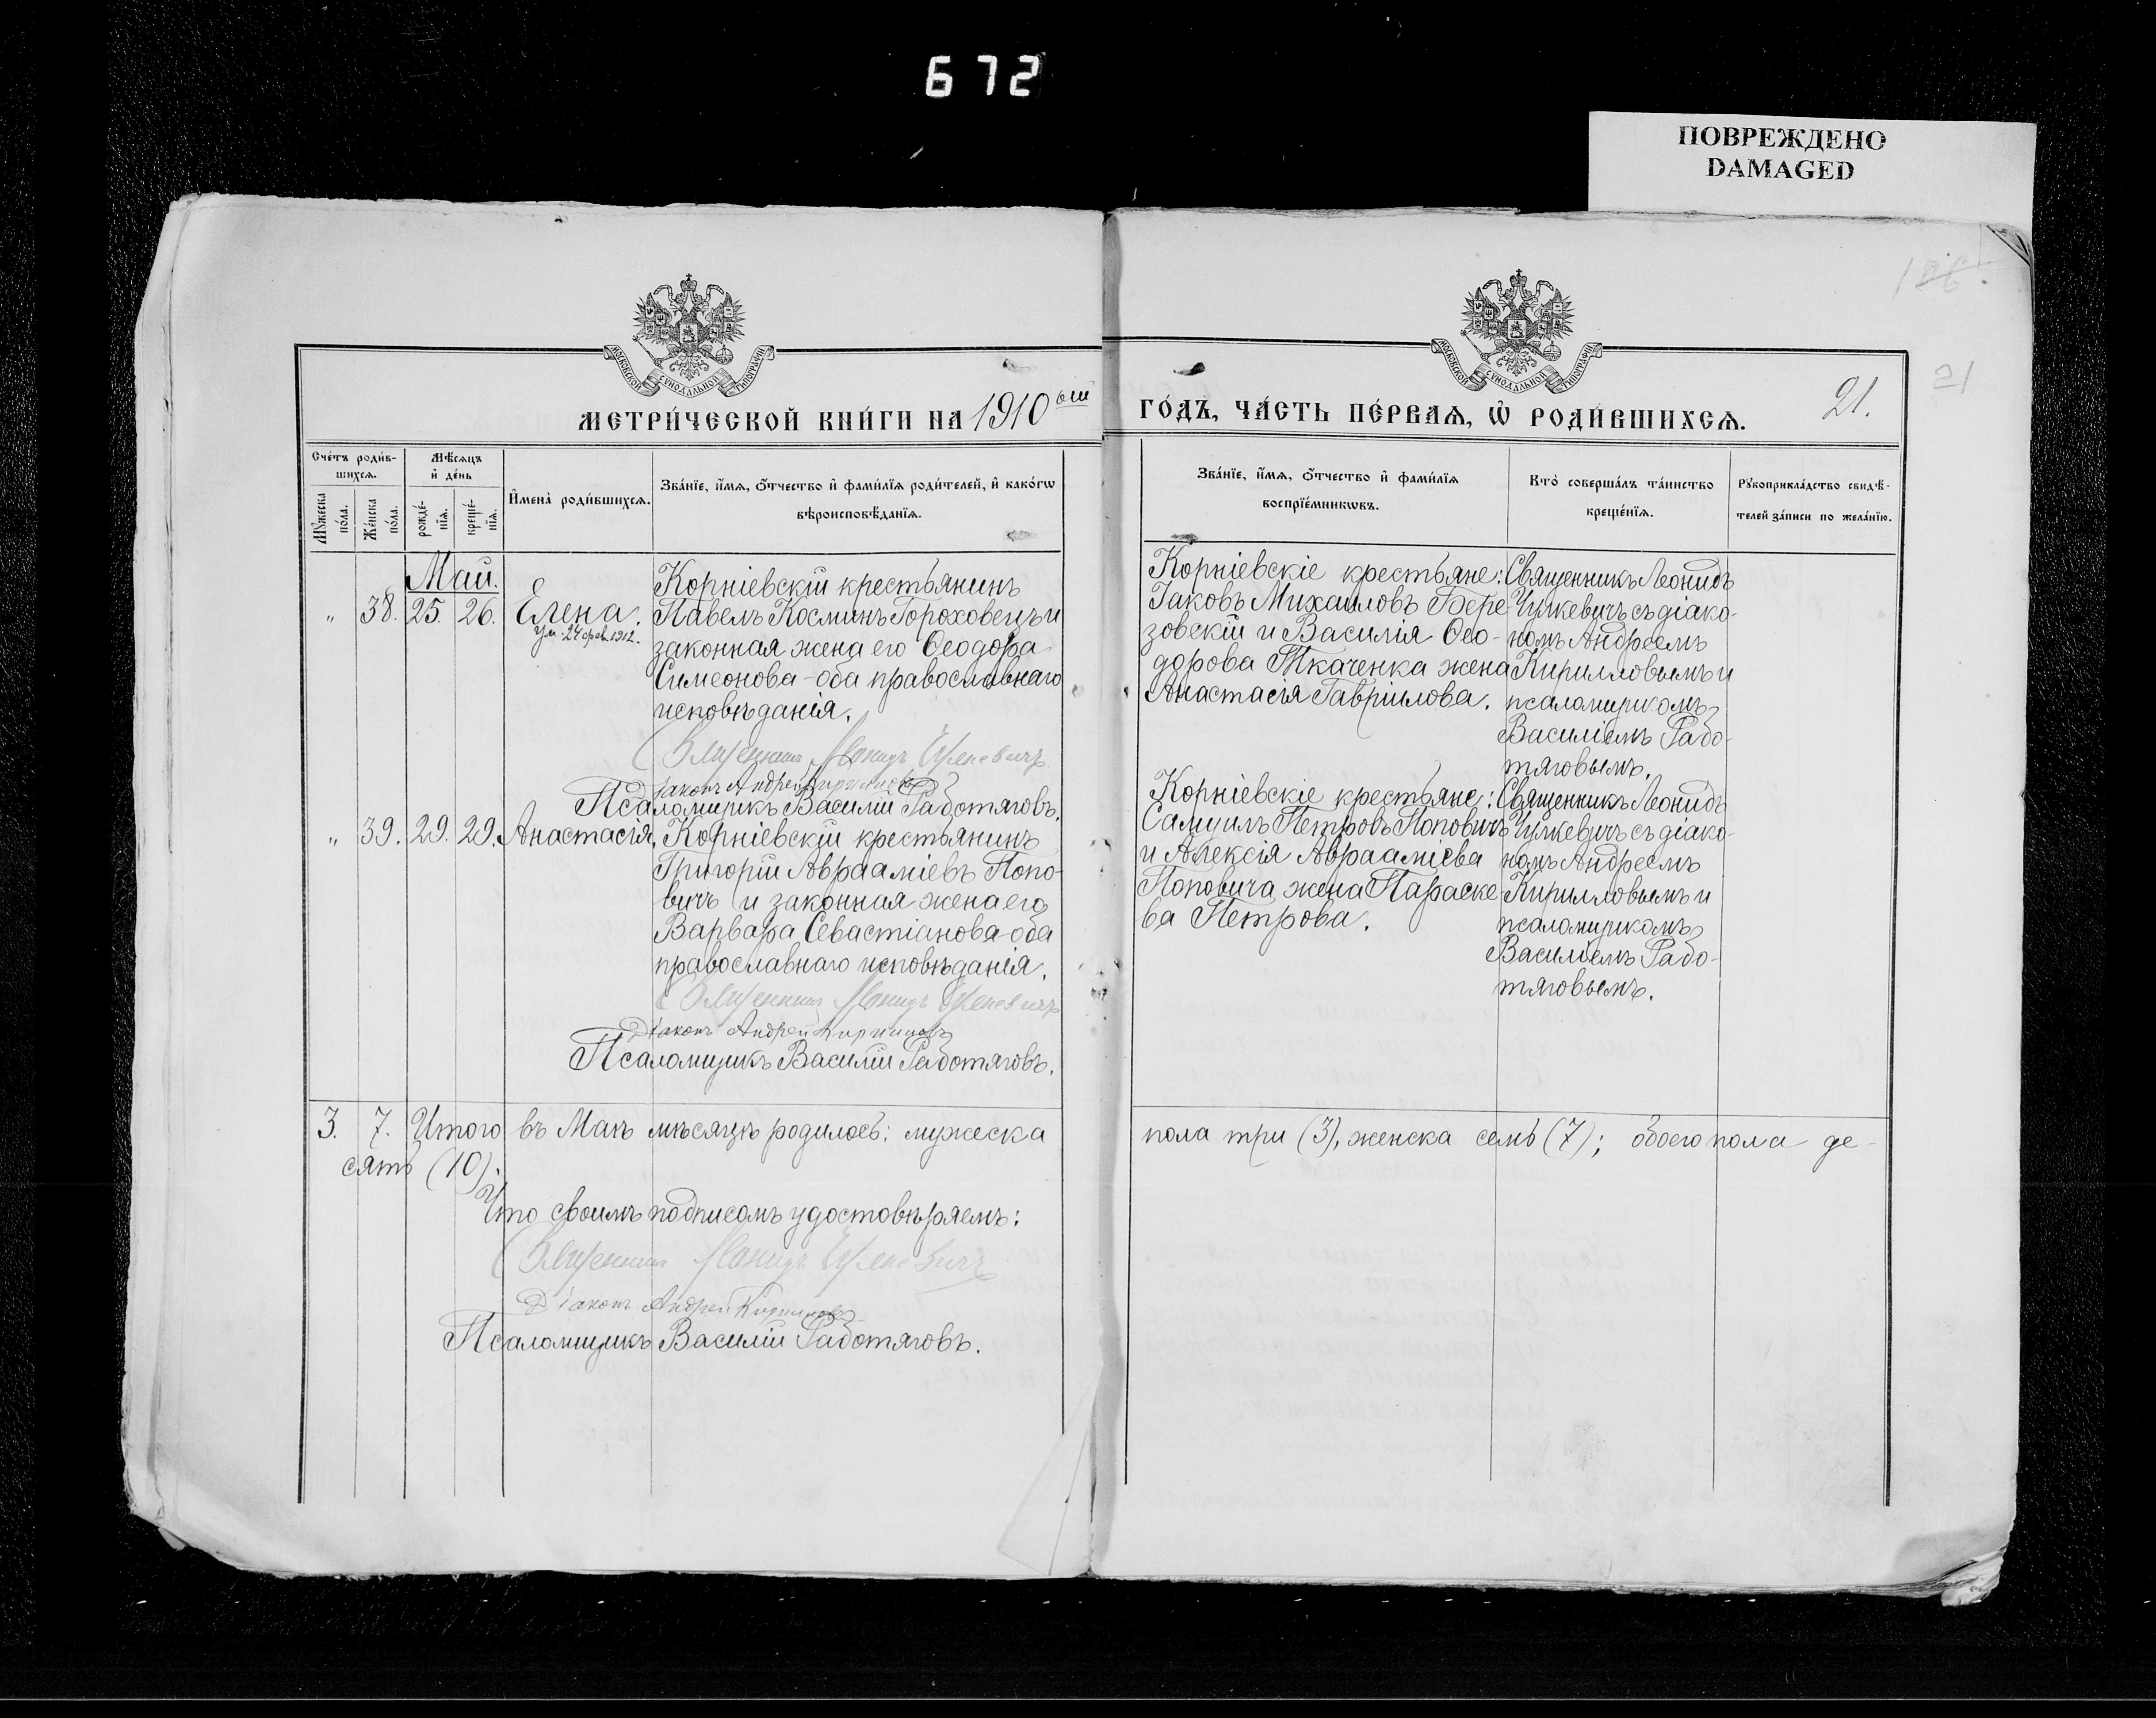 672
ПОВРЕЖДЕНО
DAMAGED
21
МОСКОВСКОЙ СѴНОДАЛЬНОЙ ТИПОГРАФІИ
МОСКОВСКОЙ СѴНОДАЛЬНОЙ ТИПОГРАФІИ
МЕТРИ́ЧЕСКОЙ КНИ́ГИ НА 1910 ый
ГО́ДЪ, ЧА́СТЬ ПЕ́РВАѦ, Ѡ҆ РОДИ́ВШИХСѦ.
21.
Сче́тъ роди́в-
шихсѧ.
Мꙋ́жеска
по́ла.
Же́нска
по́ла.
Мѣ́сѧцъ
и҆ де́нь
рожде́-
нїѧ.
креще́-
нїѧ.
И҆мена̀ роди́вшихсѧ.
Зва́нїе, и҆́мѧ, ѻ҆́тчество и҆ фами́лїѧ роди́телей, и҆ како́гѡ
вѣроисповѣ́данїѧ.
Зва́нїе, и҆́мѧ, ѻ҆́тчество и҆ фами́лїѧ
воспрїе́мникѡвъ.
Кто̀ соверша́лъ та́инство
креще́нїѧ.
Рꙋкоприкла́дство свидѣ́-
телей за́писи по жела́нїю.
Май.
„ 38. 25. 26. Елена.
Ум. 24 фев. 1912.
Корніевскій крестьянинъ
Павелъ Косминъ Гороховецъ и
законная жена его Ѳеодора
Симеонова - оба православнаго
исповѣданія.
Священникъ Леонидъ Чулкевичъ
Діаконъ Андрей Кирилловъ
Псаломщикъ Василій Работяговъ.
Корніевскіе крестьяне:
Іаковъ Михаиловъ Бере-
зовскій и Василія Ѳео-
дорова Ткаченка жена
Анастасія Гавріилова.
Священникъ Леонидъ
Чулкевичъ съ діако-
номъ Андреемъ
Кирилловымъ и
псаломщикомъ
Василіемъ Рабо-
тяговымъ.
„ 39. 29. 29. Анастасія.
Корніевскій крестьянинъ
Григорій Авраамісвъ Попо-
вичъ и законная жена его
Варвара Севастіанова - оба
православнаго исповѣданія.
Священникъ Леонидъ Чулкевичъ
Діаконъ Андрей Кирилловъ
Псаломщикъ Василій Работяговъ.
Корніевскіе крестьяне:
Самуилъ Петровъ Поповичъ
и Алексія Авраамісва
Поповича жена Параске-
ва Петрова.
Священникъ Леонидъ
Чулкевичъ съ діако-
номъ Андреемъ
Кирилловымъ и
псаломщикомъ
Василіемъ Рабо-
тяговымъ.
3. 7. Итого въ Маѣ мѣсяцѣ родилось: мужеска пола три (3), женска семь (7); обоего пола де-
сять (10).
Что своимъ подписомъ удостовѣряемъ:
Священникъ Леонидъ Чулкевичъ
Діаконъ Андрей Кирилловъ
Псаломщикъ Василій Работяговъ.